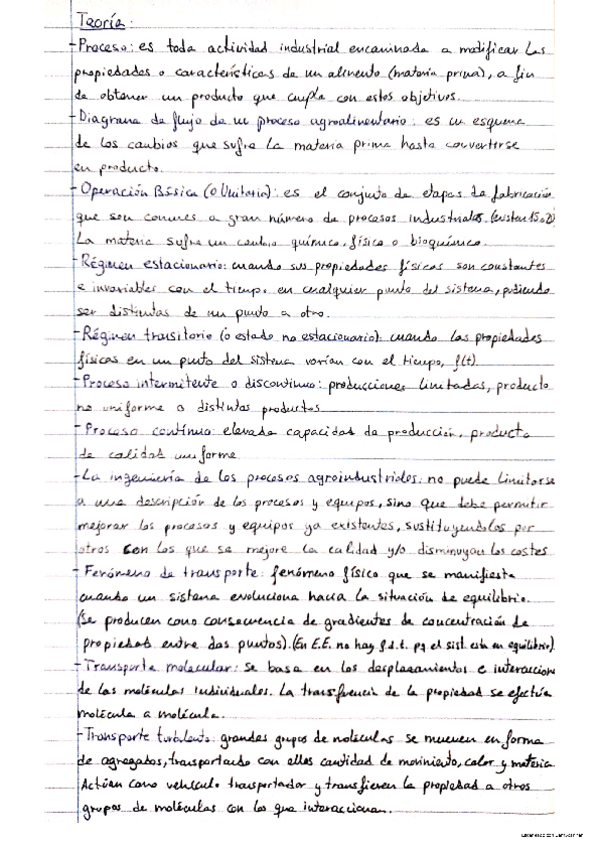 Teoría:
- Proceso: es toda actividad industrial encaminada a modificar las
propiedades o características de un alimento (materia prima), a fin
de obtener un producto que cumpla con estos objetivos.
- Diagrama de flujo de un proceso agroalimentario: es un esquema
de los cambios que sufre la materia prima hasta convertirse
en producto.
- Operación Básica (o Unitaria): es el conjunto de etapas de fabricación
que son comunes a gran número de procesos industriales.
La materia sufre un cambio químico, físico o bioquímico.
- Régimen estacionario: cuando sus propiedades físicas son constantes
e invariables con el tiempo en cualquier punto del sistema, pudiendo
ser distintas de un punto a otro.
- Régimen transitorio (o estado no estacionario): cuando las propiedades
físicas en un punto del sistema varían con el tiempo, f(t).
- Proceso intermitente o discontinuo: producciones limitadas, producto
no uniforme o distintos productos
- Proceso continuo: elevada capacidad de producción, producto
de calidad uniforme
- La ingeniería de los procesos agroindustriales: no puede limitarse
a una descripción de los procesos y equipos, sino que debe permitir
mejorar los procesos y equipos ya existentes, sustituyéndolos por
otros con los que se mejore la calidad y/o disminuyan los costes
- Fenómeno de transporte: fenómeno físico que se manifiesta
cuando un sistema evoluciona hacia la situación de equilibrio.
(Se producen como consecuencia de gradientes de concentración de
propiedad entre dos puntos). (En E.E. no hay f.d.t. pq el sist. esta en equilibrio).
- Transporte molecular: se basa en los desplazamientos e interacciones
de las moléculas individuales. La transferencia de la propiedad se efectúa
molécula a molécula.
- Transporte turbulento: grandes grupos de moléculas se mueven en forma
de agregados, transportando con ellos cantidad de movimiento, calor y materia.
Actúan como vehículo transportador y transfieren la propiedad a otros
grupos de moléculas con los que interaccionan.